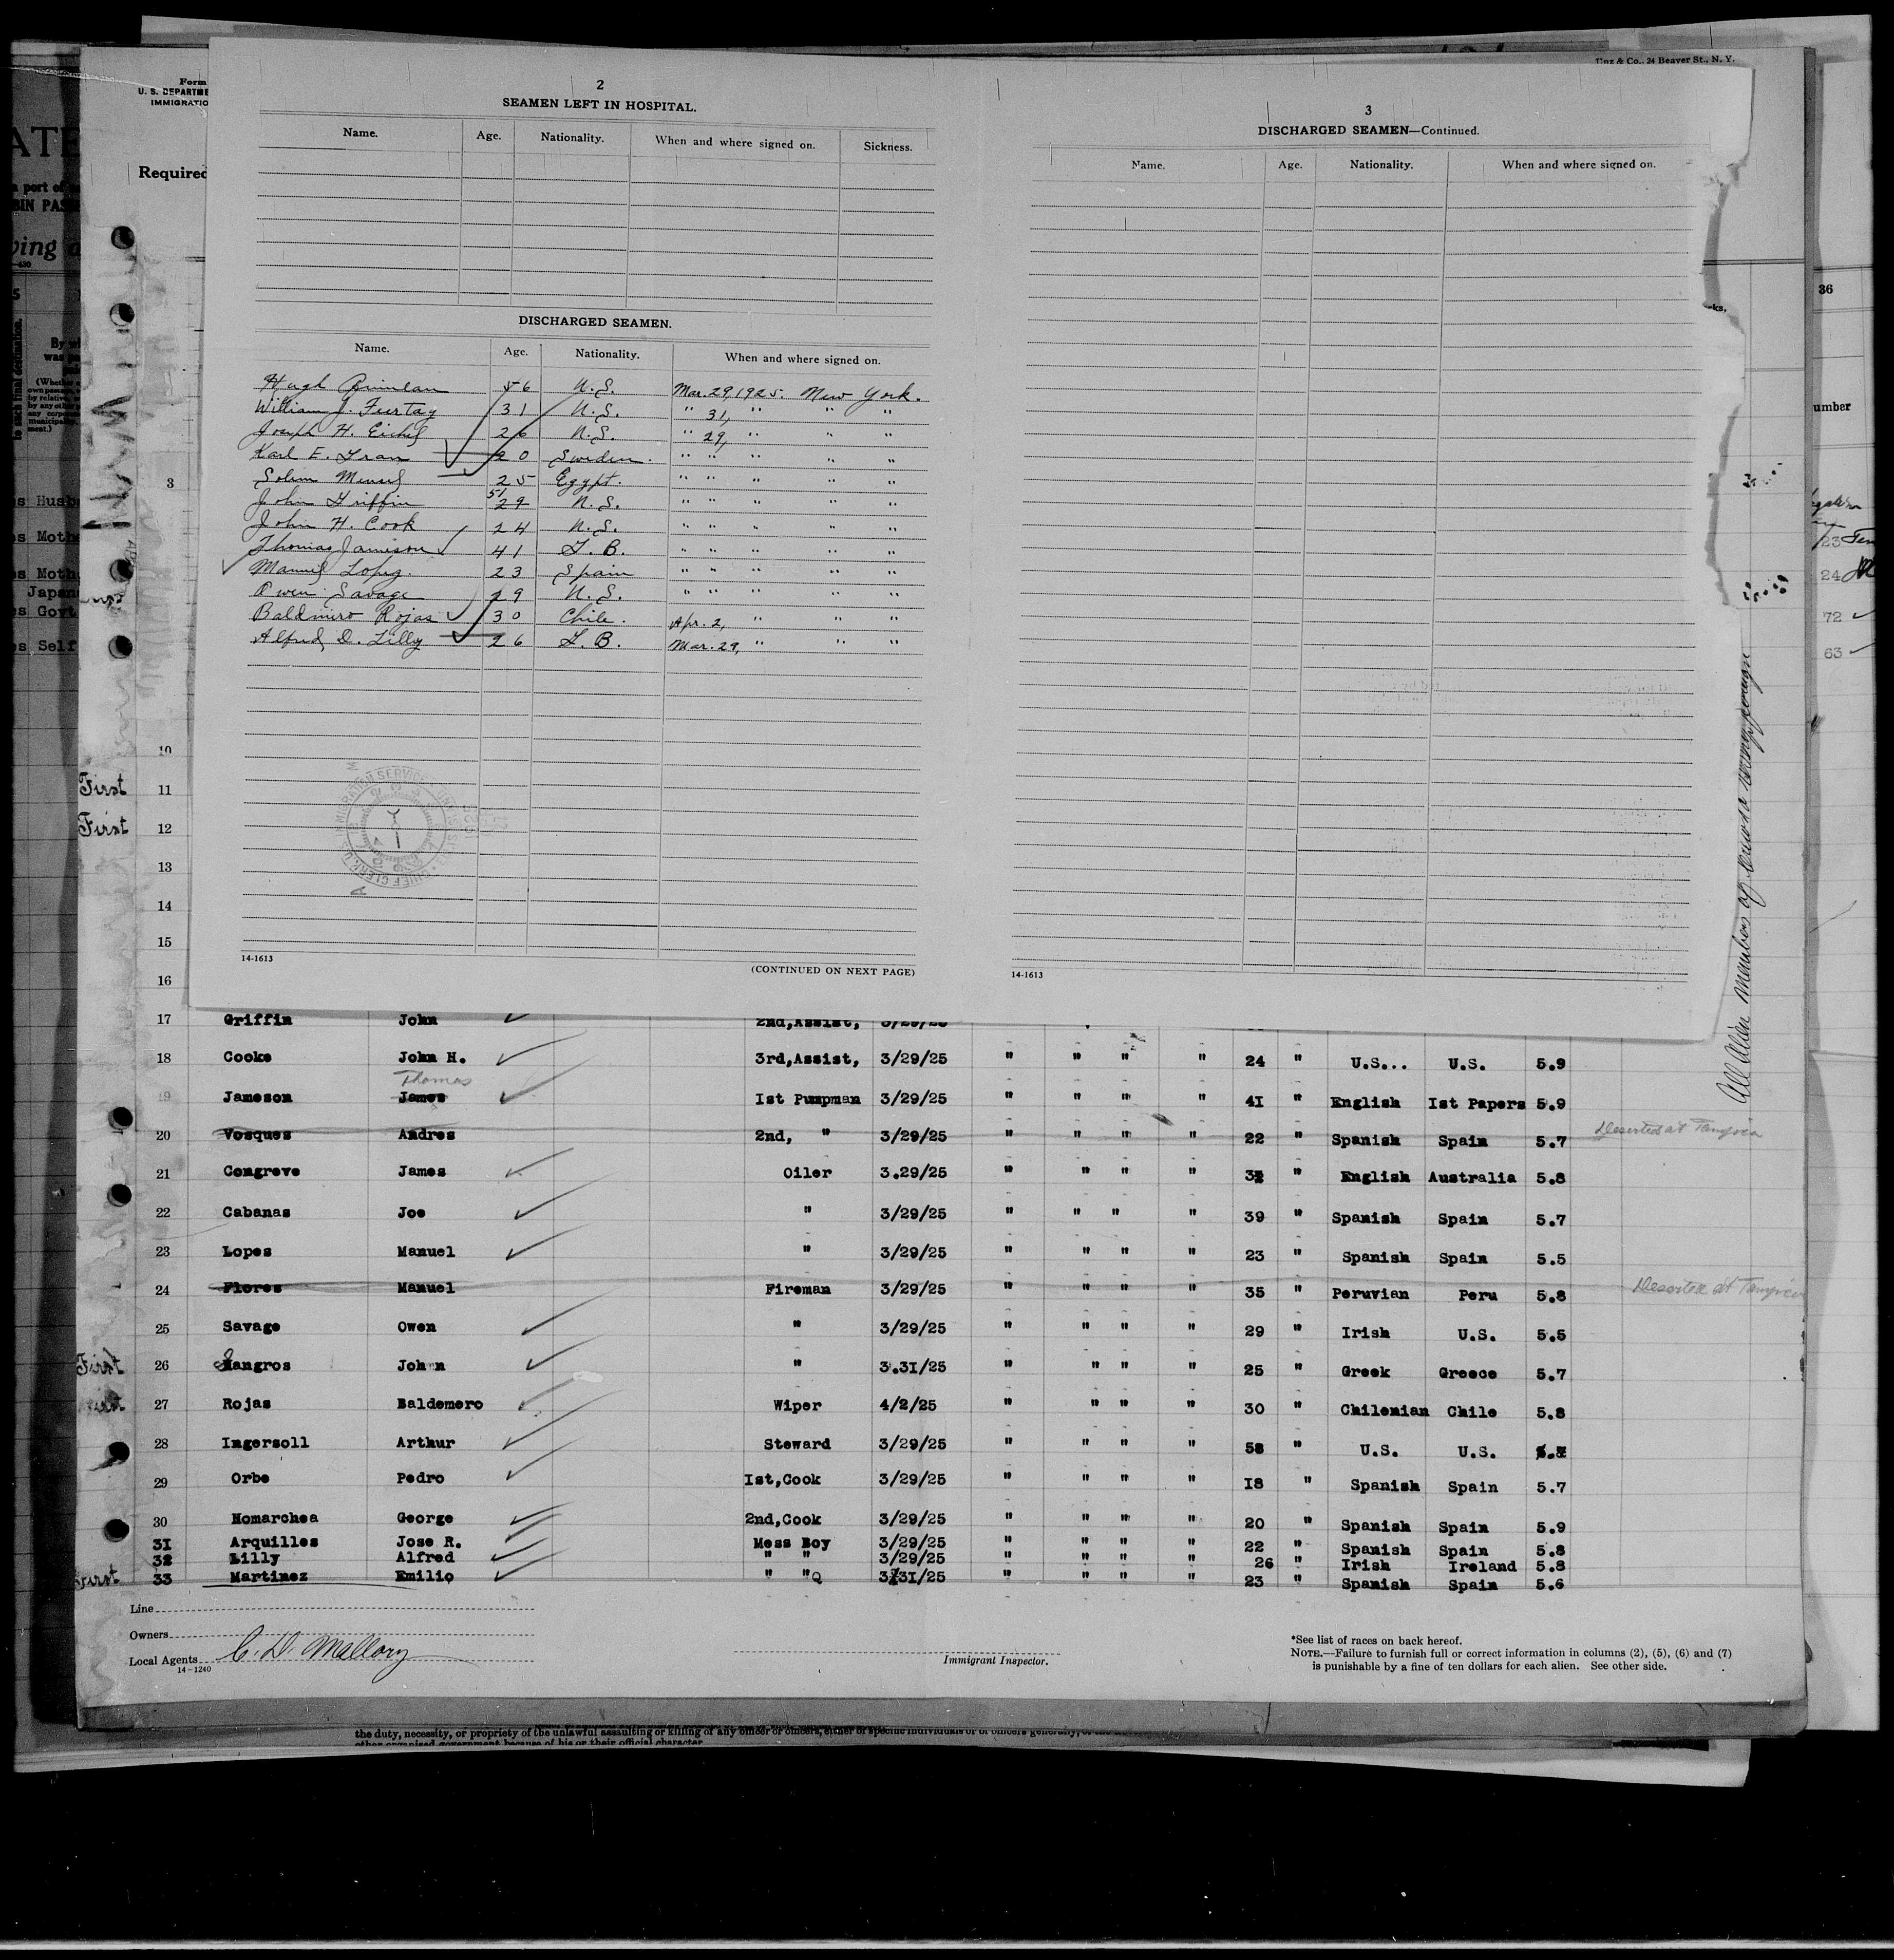 Unz & Co., 24 Beaver St., N. Y.
Form
U. S. DEPARTME
IMMIGRATIO
Required
2
SEAMEN LEFT IN HOSPITAL.
Name. Age. Nationality. When and where signed on. Sickness.
DISCHARGED SEAMEN.
Name. Age. Nationality. When and where signed on.
Hugh 56 U.S. Mar. 29, 1925. New York.
William J. 31 U.S. " 31, " " "
Joseph H. 26 U.S. " 29, " " "
Karl E. 20 Sweden. " " " " "
25 Egypt. " " " " "
John Griffin 51 29 U.S. " " " " "
John H. Cook 24 U.S. " " " " "
Thomas Jamieson 41 G. B. " " " " "
Manuel Lopez. 23 Spain " " " " "
Owen Savage 29 U.S. " " " " "
Baldmiro Rojas 30 Chile. Apr. 2, " " "
Alfred D. Lilly 26 G. B. Mar. 29, " " "
14-1613
(CONTINUED ON NEXT PAGE)
3
DISCHARGED SEAMEN—Continued.
Name. Age. Nationality. When and where signed on.
14-1613
All Alien members of
3
10
First 11
First 12
13
14
15
16
17 Griffin John 2nd,Assist,
18 Cooke John H. 3rd,Assist, 3/29/25 " " " " 24 " U.S... U.S. 5.9
Thomas
19 Jameson James Ist Pumpman 3/29/25 " " " " 4I " English Ist Papers 5.9
20 Vosques Andres 2nd, " 3/29/25 " " " " 22 " Spanish Spain 5.7 Deserted at Tampico
21 Congreve James Oiler 3.29/25 " " " " " English Australia 5.8
22 Cabanas Joe " 3/29/25 " " " " 39 " Spanish Spain 5.7
23 Lopes Manuel " 3/29/25 " " " " 23 " Spanish Spain 5.5
24 Flores Manuel Fireman 3/29/25 " " " " 35 " Peruvian Peru 5.8 Deserted at Tampico
25 Savage Owen " 3/29/25 " " " " 29 " Irish U.S. 5.5
First 26 Sangros John " 3.31/25 " " " " 25 " Greek Greece 5.7
First 27 Rojas Baldemero Wiper 4/2/25 " " " " 30 " Chilenian Chile 5.8
28 Ingersoll Arthur Steward 3/29/25 " " " " 58 " U.S. U.S.
29 Orbe Pedro Ist,Cook 3/29/25 " " " " I8 " Spanish Spain 5.7
30 Homarchea George 2nd,Cook 3/29/25 " " " " 20 " Spanish Spain 5.9
3I Arquilles Jose R. Mess Boy 3/29/25 " " " " 22 " Spanish Spain 5.8
32 Lilly Alfred " " 3/29/25 " " " " 26 " Irish Ireland 5.8
First 33 Martinez Emilio " " 3/31/25 " " " " 23 " Spanish Spain 5.6
Line
Owners
Local Agents C. D. Mallory
14-1240
Immigrant Inspector.
*See list of races on back hereof.
NOTE.—Failure to furnish full or correct information in columns (2), (5), (6) and (7)
is punishable by a fine of ten dollars for each alien. See other side.
the duty, necessity, or propriety of the unlawful assaulting or killing of any officer or officers, either of specific individuals or of officers generally,
other organized government because of his or their official character
36
umber
23
24
72
63